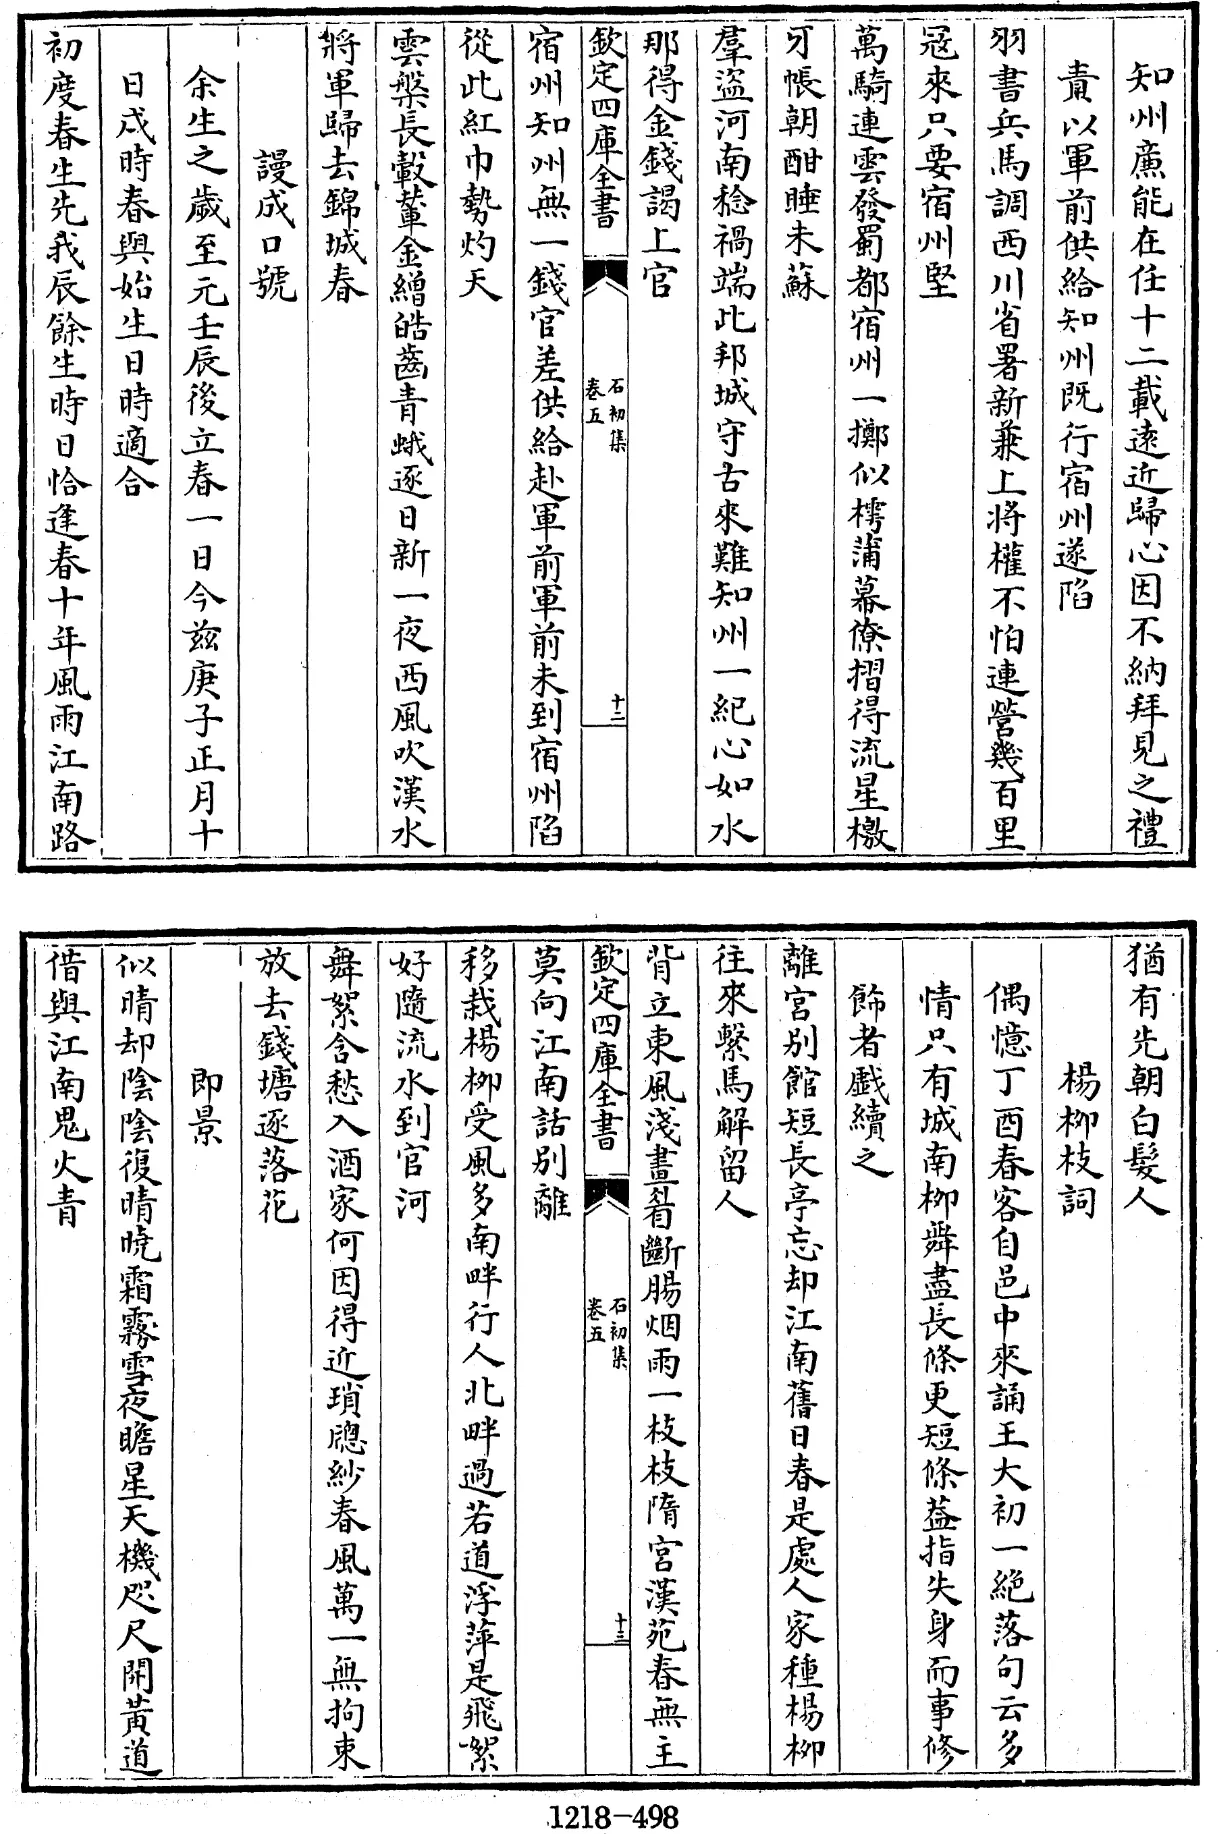 知州廉能在任十二載遠近歸心因不納拜見之禮
責以軍前供給知州既行宿州遂陷
羽書兵馬調西川省署新兼上將權不怕連營幾百里
冦來只要宿州堅
萬騎連雲發蜀都宿州一擲似樗蒲幕僚摺得流星檄
牙帳朝酣睡未蘇
羣盜河南稔禍端此邦城守古來難知州一紀心如水
那得金錢謁上官
欽定四庫全書
石初集
卷五
十二
宿州知州無一錢官差供給赴軍前軍前未到宿州陷
從此紅巾勢灼天
雲槃長轂輦金繒皓齒青蛾逐日新一夜西風吹漢水
將軍歸去錦城春
謾成口號
余生之歲至元壬辰後立春一日今兹庚子正月十
日戍時春與始生日時適合
初度春生先我辰餘生時日恰逢春十年風雨江南路
猶有先朝白髮人
楊柳枝詞
偶憶丁酉春客自邑中來誦王大初一絶落句云多
情只有城南柳舞盡長條更短條葢指失身而事修
飾者戲續之
離宮別館短長亭忘却江南舊日春是處人家種楊柳
往來繫馬解留人
背立東風淺畫眉斷腸烟雨一枝枝隋宮漢苑春無主
欽定四庫全書
石初集
卷五
十三
莫向江南話別離
移栽楊柳受風多南畔行人北畔過若道浮萍是飛絮
好隨流水到官河
舞絮含愁入酒家何因得近瑣牕紗春風萬一無拘束
放去錢塘逐落花
即景
似晴却陰陰復晴曉霜霧雪夜瞻星天機咫尺開黃道
借與江南鬼火青
1218-498